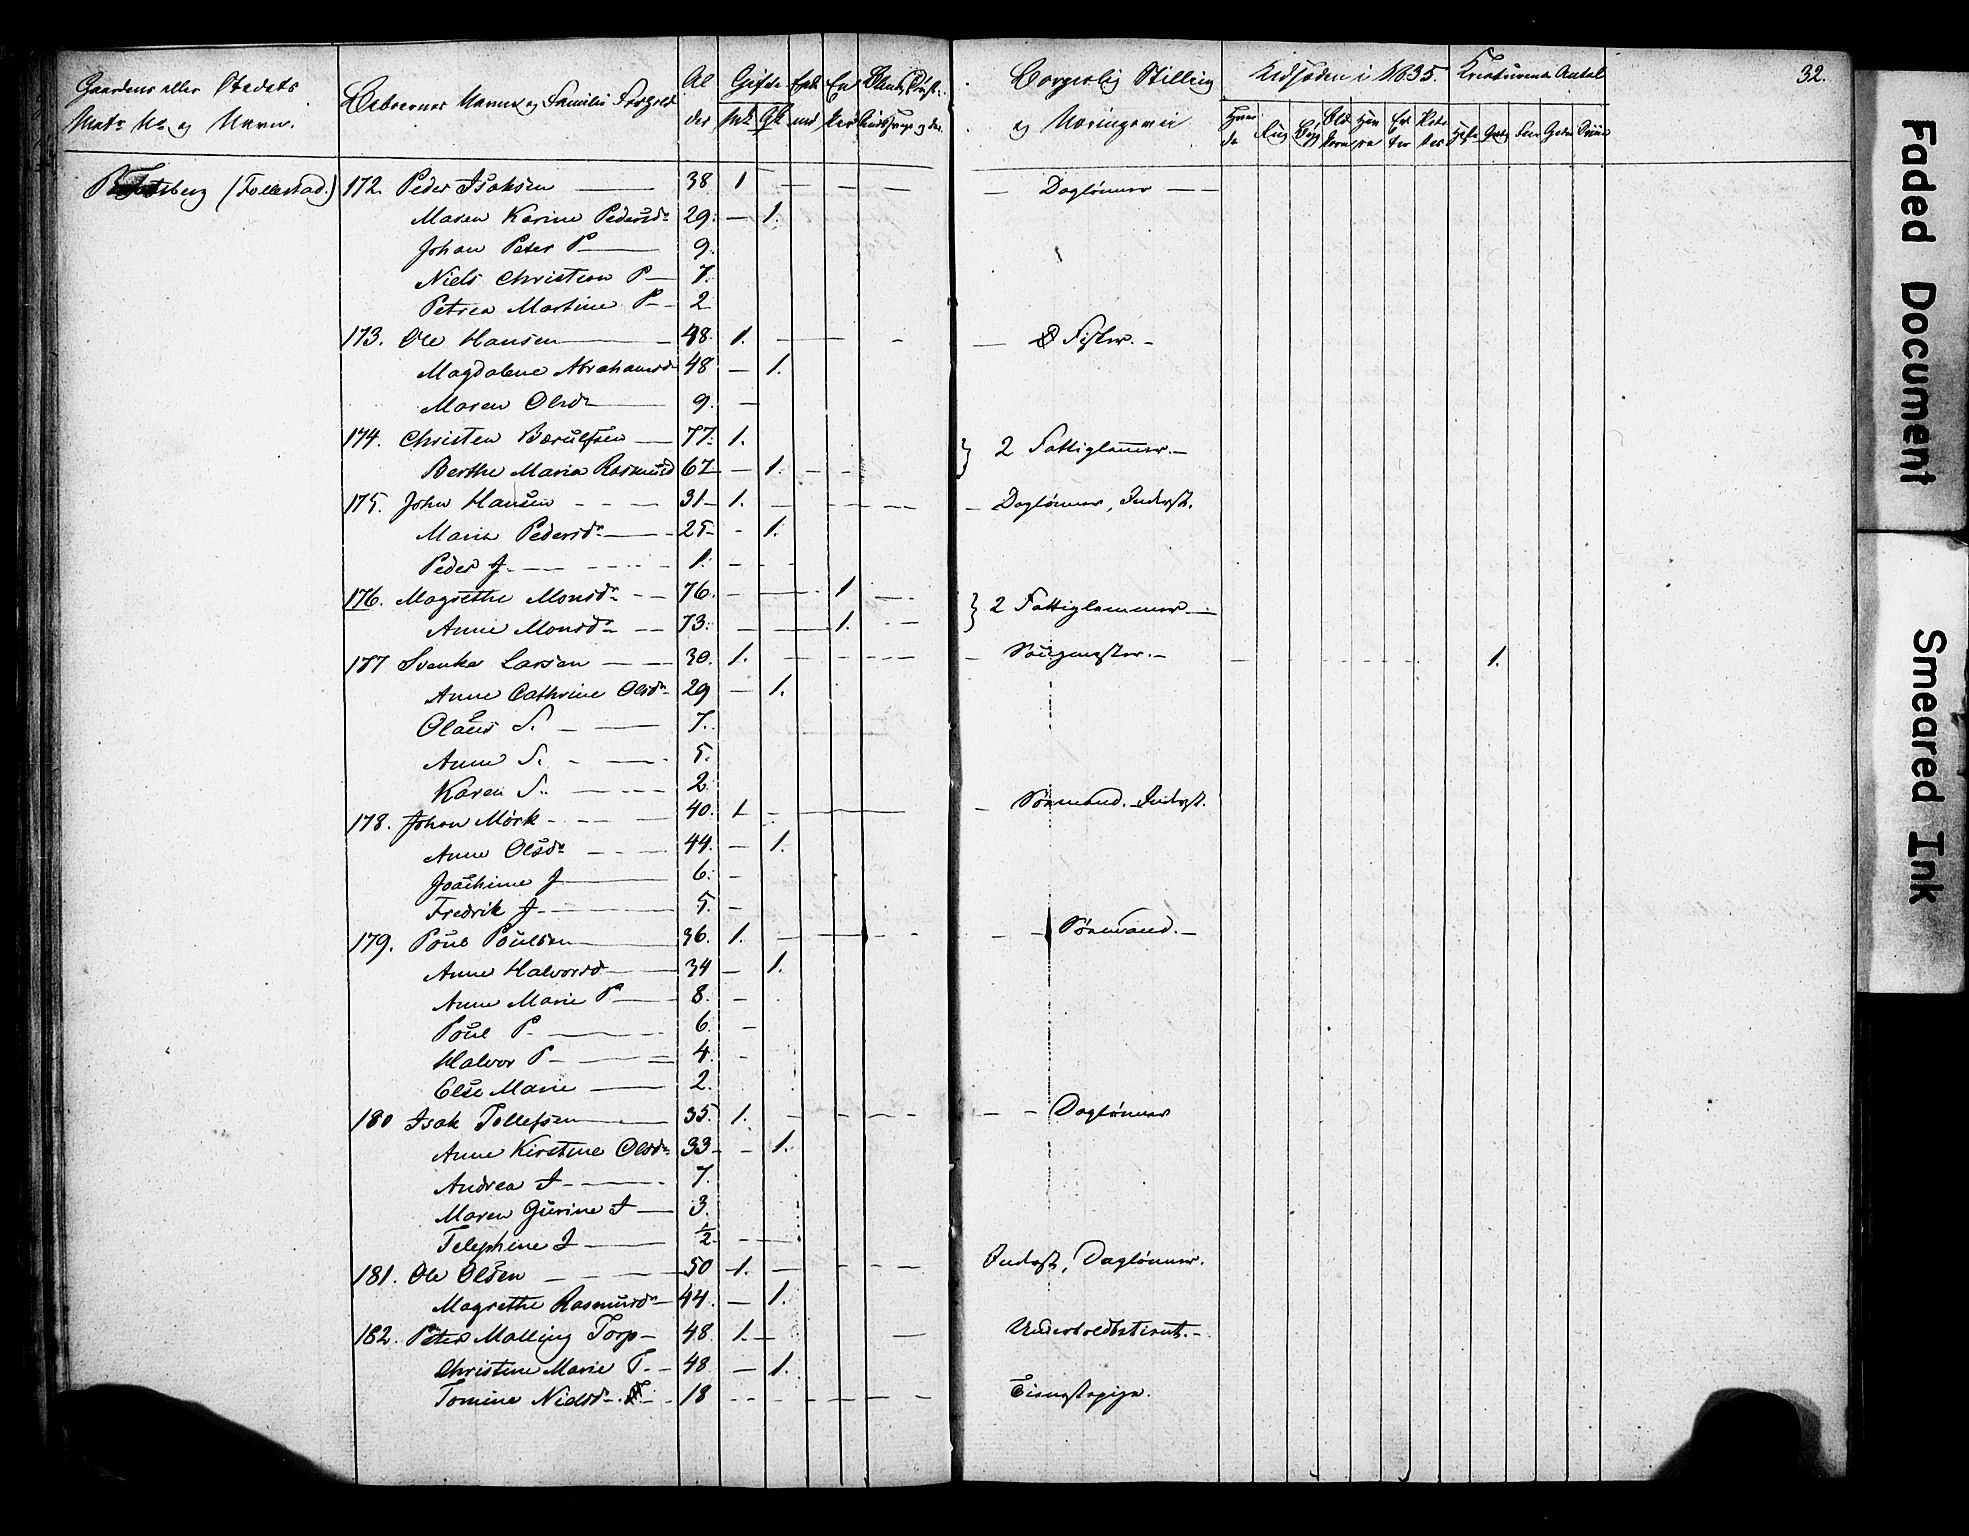 Gaardens eller Stedets
Matr No og Navn.
Beboernes Navne og Familie Forhold
Al
der
Gifte
Mk
Qk
Enk
med
En
ker
Borgerlig Stilling
og Næringsvei
Udsæden i 1835.
Kreaturenes Antal
32.
Rug
Byg
Heste
Sviin
(Follestad.)
172. Peder Isaksen 38 1 Daglønner
Maren Karine Pedersdr 29. 1.
Johan Peter P 9.
Niels Christian P 7.
Petrea Martine P 2
173. Ole Hansen 48. 1. Fisker.
Magdalene Abrahamsd 48 1.
Maren Olsdr 9.
174. Christen Berulfsen 77. 1.
} 2 Fattiglemmer.
Berthe Maria Rasmusd 67 1.
175. John Hansen 31 1. Daglønner, Inderst.
Maria Pedersdr 25 1.
Peder J. 1.
176. Magrethe Monsdr 76. 1
} 2 Fattiglemmer
Anne Monsdr 73. 1.
177 Svenke Larsen 30. 1. 1.
Anne Cathrine Olsdr 29 1.
Olaus S. 7.
Anne S. 5.
Karen S. 2
178. Johan Mörk 40. 1 Sömand. Inderst.
Anne Olsdr 44. 1.
Joachime J 6.
Fredrik J 5.
179. Poul Poulsen 36. 1. Sömand.
Anne Halvorsd 34 1.
Anne Marie P 8.
Poul P. 6.
Halvor P 4.
Else Marie 2.
180 Isak Tollefsen 35. 1. Daglønner
Anne Kirstine Olsdr 33 1.
Andrea I 7.
Maren Gurine I 3.
Telephine I 1/2
181. Ole Olsen 50 1. Inderst, Daglønner.
Magrethe Rasmusdr 44. 1.
182. Peter Malling Torp 48. 1. Underholdbetient.
Christine Marie T. 48 1.
Tomine Nielsdr T. 18 Tienestepige.
Faded Document
Smeared Ink